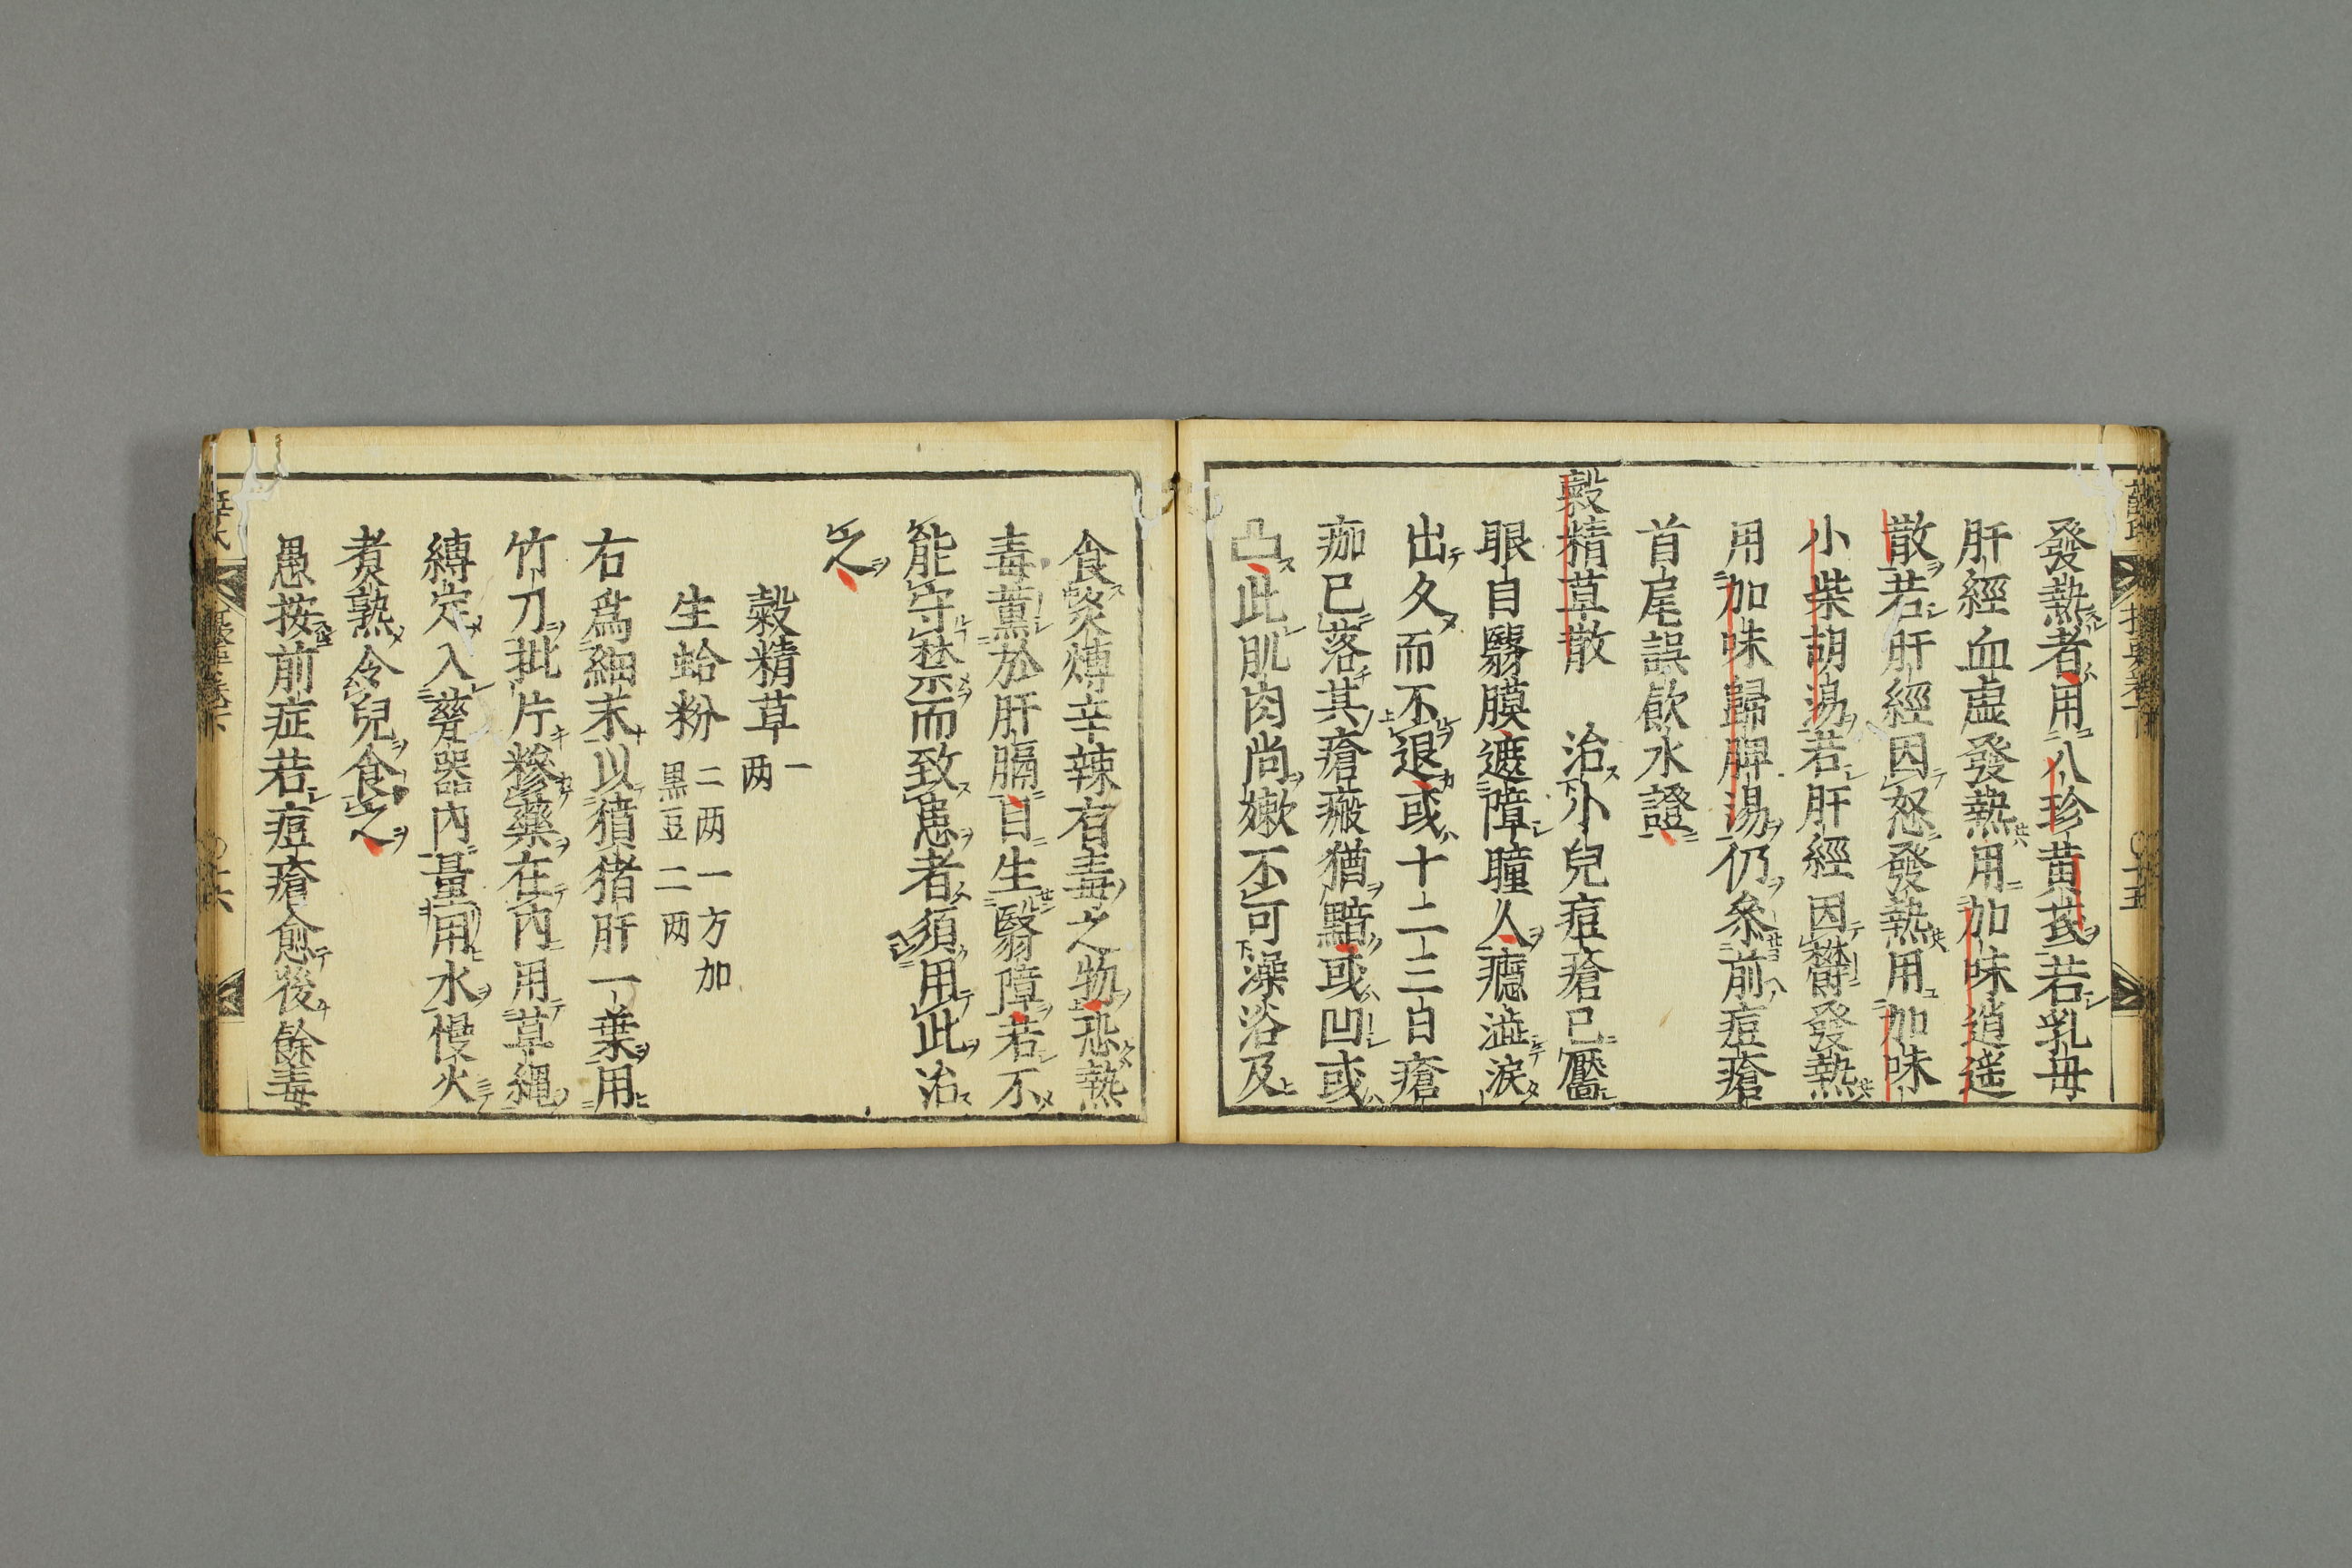 發熱者用八珍黄芪若乳母
肝經血虚發熱用加味逍遥
散若肝經因怒發熱用加味
小柴胡湯若肝經因鬱發熱
用加味歸脾湯仍參前痘瘡
首尾誤飲水證
穀精草散 治小兒痘瘡已靨
眼目翳膜遮障瞳人癮澁淚
出久而不退或十二三日瘡
痂已落其瘡瘢猶黯或凹或
凸此肌肉尚嫩不可澡浴及
食炙煿辛辣有毒之物恐熱
毒薰於肝膈目生翳障若不
能守禁而致患者須用此治
之
穀精草一两
生蛤粉二两一方加黒豆二两
右爲細末以獖猪肝一葉用
竹刀批片糝藥在内用草繩
縛定入甆器内量用水慢火
煮熟令兒食之
愚按前症若痘瘡愈後餘毒